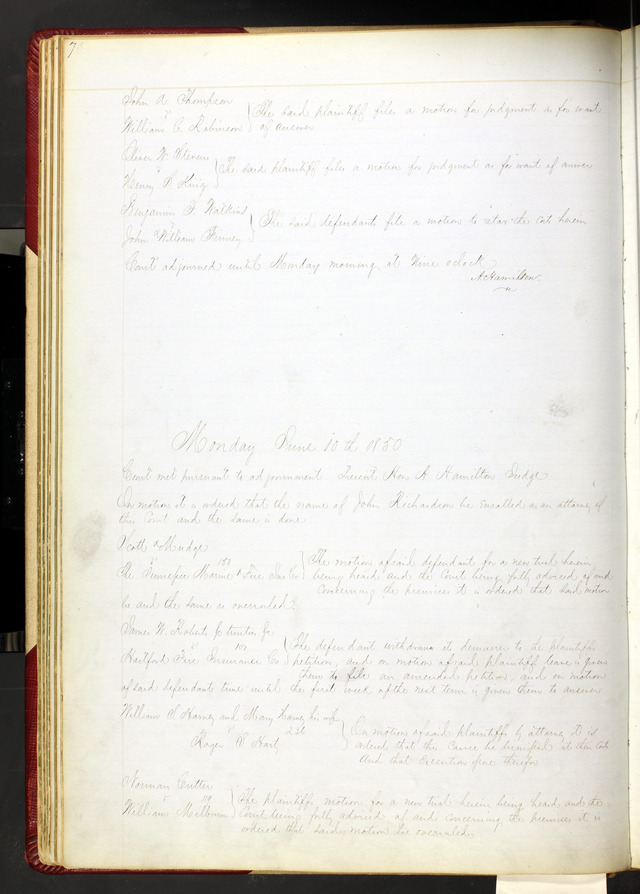 7
John A. Thompson
vs
William C. Robinson } The said plaintiff files a motion for judgment as for want of answer
Oliver W. Stevens
vs
Henry S King } The said plaintiff files a motion for judgment as for want of answer
Benjamin F Watkins
vs
John William Finney } The said defendants file a motion to retax the costs herein
Court adjourned until Monday morning at Nine o'clock
A. Hamilton
Monday June 10th 1850
Court met pursuant to adjournment Present Hon A Hamilton Judge
On motion it is ordered that the name of John Richardson be Enrolled as an attorney of
this Court and the same is done
Scott & Mudge
vs
The Tennessee Marine & Fire Ins Co } The motion of said defendant for a new trial herein
being heard and the Court being fully advised of and
Concerning the premises it is ordered that said motion
be and the same is overruled
James W. Roberts
vs
Hartford Fire Insurance Co } The defendant withdraws its demurrer to the plaintiffs
petition, and on motion of said plaintiff leave is given
them to file an amended petition, and on motion
of said defendants time until the first week of the next term is given them to answer
William S Harney and Mary Harney his wife
vs
Roger S Hart } On motion of said plaintiffs by attorney it is
ordered that this Cause be dismissed at their Costs
And that Execution issue therefor
Norman Cutter
vs
William Milburn } The plaintiffs motion for a new trial herein being heard and the
Court being fully advised of and concerning the premises it is
ordered that said motion be overruled